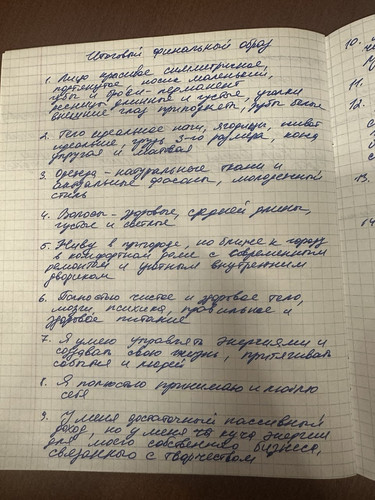 Итоговый финальный образ
1. Лицо красивое симметричное,
подтянутое, носик маленький,
губы и брови - перманент
ресницы длинные и густые, уголки
внешние глаз приподняты, зубы белые
2. Тело идеальное ноги, ягодицы, живот
идеальные, грудь 3-го размера, кожа
упругая и матовая
3. Одежда - натуральные ткани и
актуальные фасоны, молодежный
стиль
4. Волосы - здоровые, средней длины,
густые и светлые
5. Живу в пригороде, но ближе к городу
в комфортном доме с современным
ремонтом и уютным внутренним
двориком
6. Полностью чистое и здоровое тело,
мозги, психика, правильное и
здоровое питание
7. Я умею управлять энергиями и
создавать свою жизнь, притягивать
события и людей
8. Я полностью принимаю и люблю
себя
9. У меня достаточный пассивный
доход, но у меня куча энергии
для моего собственного бизнеса,
связанного с творчеством
10.
11.
12.
13.
14